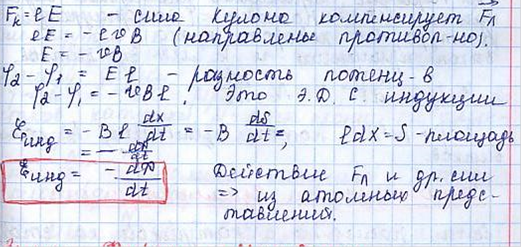 Fк = eE - сила Кулона компенсирует Fл
eE = -evB (направлены противоп-но).
E = -vB
φ2-φ1 = Eℓ - разность потенц-в
φ2-φ1 = -vBℓ. Это Э.Д.С. индукции
Ɛинд = -Bℓ dx/dt = -B dS/dt =, ℓdx=S-площадь
= - dФ/dt
Ɛинд = - dФ/dt Действие Fл и др. сил
=> из атомных предс-
тавлений.